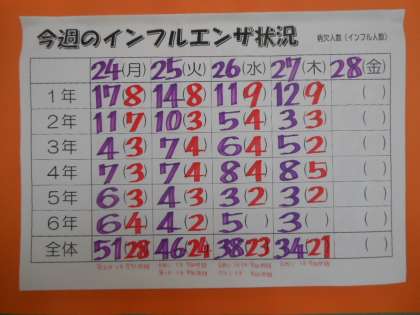 今週のインフルエンザ状況 病欠人数（インフル人数）
24(月) 25(火) 26(水) 27(木) 28(金)
1年 17(8) 14(8) 11(9) 12(9) ( )
2年 11(7) 10(3) 5(4) 3(3) ( )
3年 4(3) 7(4) 6(4) 5(2) ( )
4年 7(3) 7(4) 8(4) 8(5) ( )
5年 6(3) 4(3) 3(2) 3(2) ( )
6年 6(4) 4(2) 5( ) 3( ) ( )
全体 51(28) 46(24) 38(23) 34(21) ( )